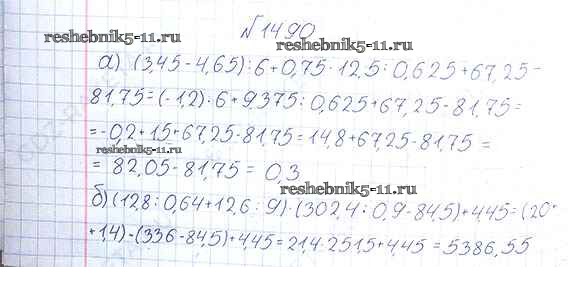 №1490
reshebnik5-11.ru
reshebnik5-11.ru
а) (3,45-4,65):6+0,75·12,5:0,625+67,25-
81,75=(-1,2):6+9,375:0,625+67,25-81,75=
=-0,2+15+67,25-81,75=14,8+67,25-81,75=
reshebnik5-11.ru
= 82,05-81,75= 0,3
reshebnik5-11.ru
б)(12,8:0,64+12,6:9)·(302,4:0,9-84,5)+4,45=(20+
+1,4)·(336-84,5)+4,45=21,4·251,5+4,45=5386,55